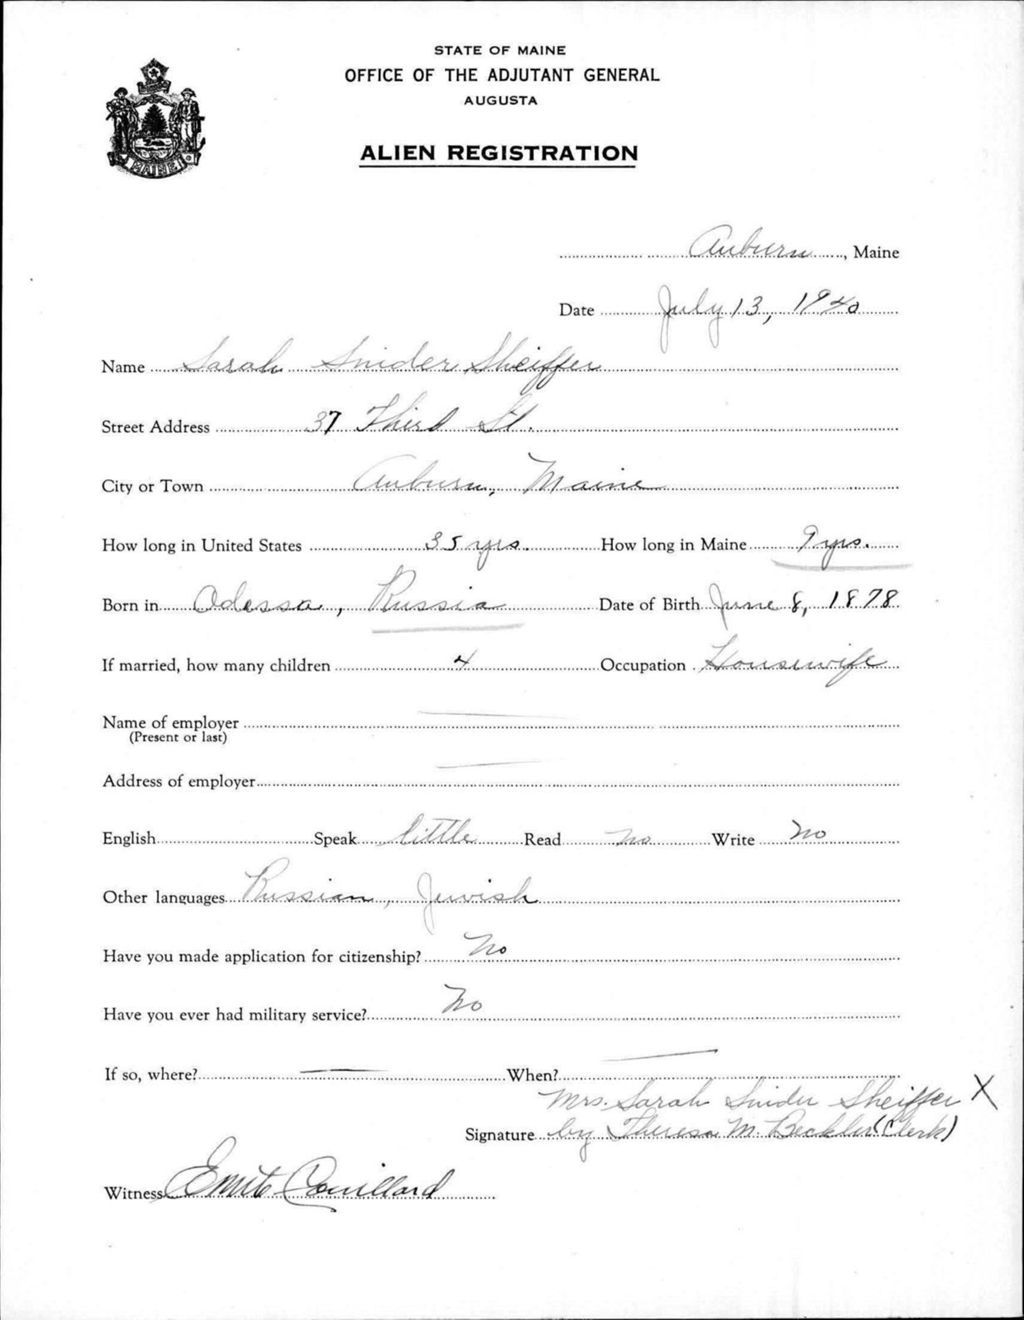 STATE OF MAINE
OFFICE OF THE ADJUTANT GENERAL
AUGUSTA
ALIEN REGISTRATION
MAINE
Auburn, Maine
Date July 13, 1940
Name Sarah Snider Sheiffer
Street Address 37 Third St.
City or Town Auburn, Maine
How long in United States 35 yrs. How long in Maine 9 yrs.
Born in Odessa, Russia Date of Birth June 8, 1878
If married, how many children 4 Occupation Housewife
Name of employer
(Present or last)
Address of employer
English Speak little Read no Write no
Other languages Russian, Jewish
Have you made application for citizenship? No
Have you ever had military service? No
If so, where? When?
Mrs. Sarah Snider Sheiffer X
Signature by Theresa M. Beckler (Clerk)
Witness Couillard